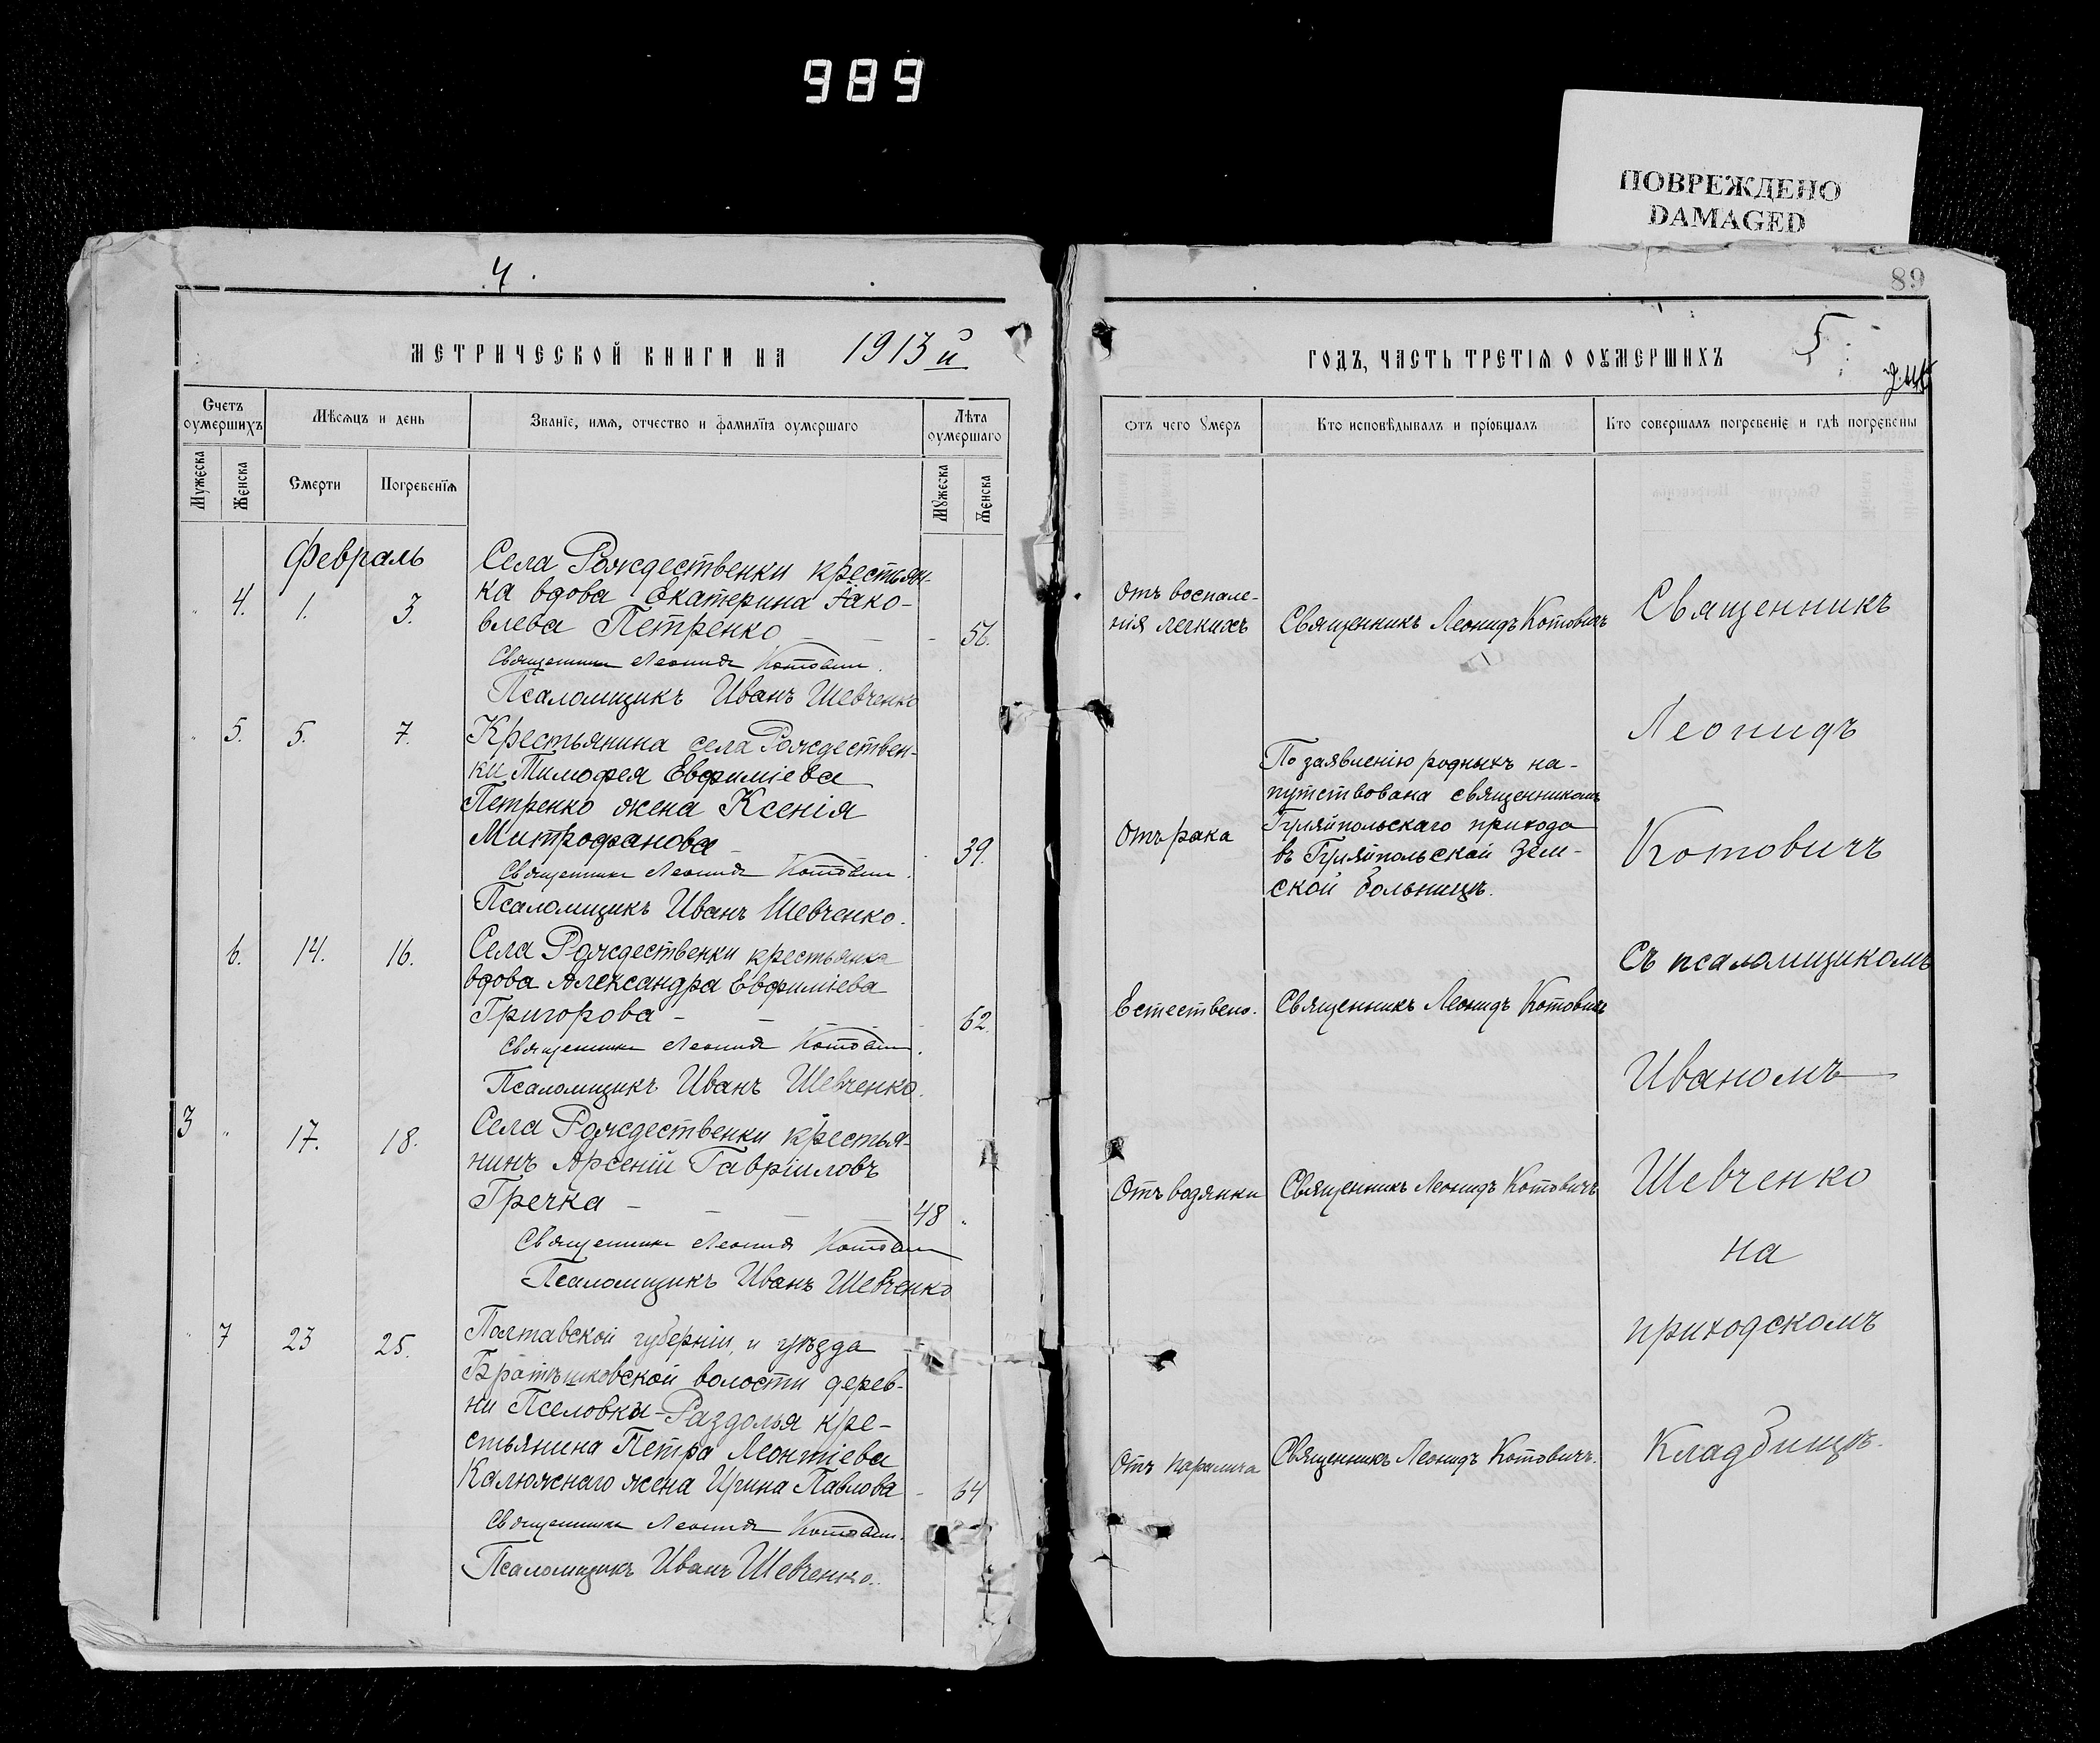 989
ПОВРЕЖДЕНО
DAMAGED
4.
МЕТРИЧЕСКОЙ КНИГИ НА 1913й
Счетъ оумершихъ
Мѣсяцъ и день
Званіе, имя, отчество и фамилїя оумершаго
Лѣта оумершаго
Мужеска
Женска
Смерти
Погребенїя
Мужеска
Женска
Февраль
4. 1. 3.
Села Рождественки крестьян-
ка вдова Екатерина Яко-
влева Петренко - - - 56.
Священникъ Леонидъ Котовичъ.
Псаломщикъ Иванъ Шевченко
5. 5. 7.
Крестьянина села Рождествен-
ки Тимофея Евфиміева
Петренко жена Ксенія
Митрофанова - 39.
Священникъ Леонидъ Котовичъ.
Псаломщикъ Иванъ Шевченко.
6. 14. 16.
Села Рождественки крестьянка
вдова Александра Евфиміева
Григорова - - - - 62.
Священникъ Леонидъ Котовичъ.
Псаломщикъ Иванъ Шевченко.
3 " 17. 18.
Села Рождественки крестья-
нинъ Арсеній Гавріиловъ
Гречка - - - - 48 "
Священникъ Леонидъ Котовичъ
Псаломщикъ Иванъ Шевченко
" 7 23 25.
Полтавской губерніи, и уѣзда
Братѣшковской волости дерев-
ни Пселовки-Раздолья кре-
стьянина Петра Леонтіева
Калюжнаго жена Ирина Павлова - 64
Священникъ Леонидъ Котовичъ.
Псаломщикъ Иванъ Шевченко.
89
ГОДЪ, ЧАСТЬ ТРЕТІЯ О ОУМЕРШИХЪ
5
Отъ чего умеръ
Кто исповѣдывалъ и пріобщалъ
Кто совершалъ погребеніе и гдѣ погребены
Отъ воспале-
нія легкихъ
Священникъ Леонидъ Котовичъ
Отъ рака
По заявленію родныхъ на-
путствована священникомъ
Гуляйпольскаго прихода
въ Гуляйпольской Зем-
ской больницѣ.
Естествено.
Священникъ Леонидъ Котовичъ
Отъ водянки
Священникъ Леонидъ Котовичъ
Отъ паралича
Священникъ Леонидъ Котовичъ.
Священникъ
Леонидъ
Котовичъ
Съ псаломщикомъ
Иваномъ
Шевченко
на
приходскомъ
Кладбищѣ.